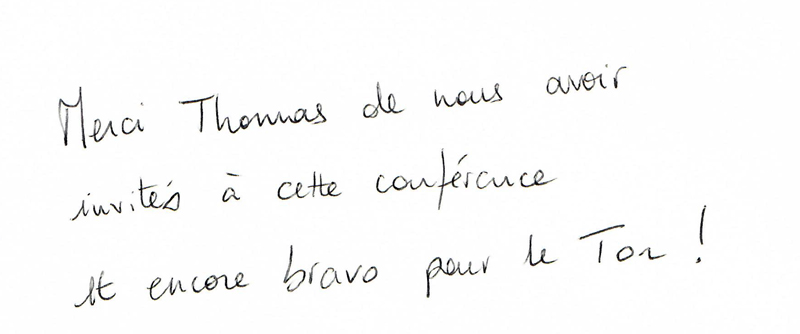 Merci Thomas de nous avoir
invités à cette conférence
et encore bravo pour le Tor !